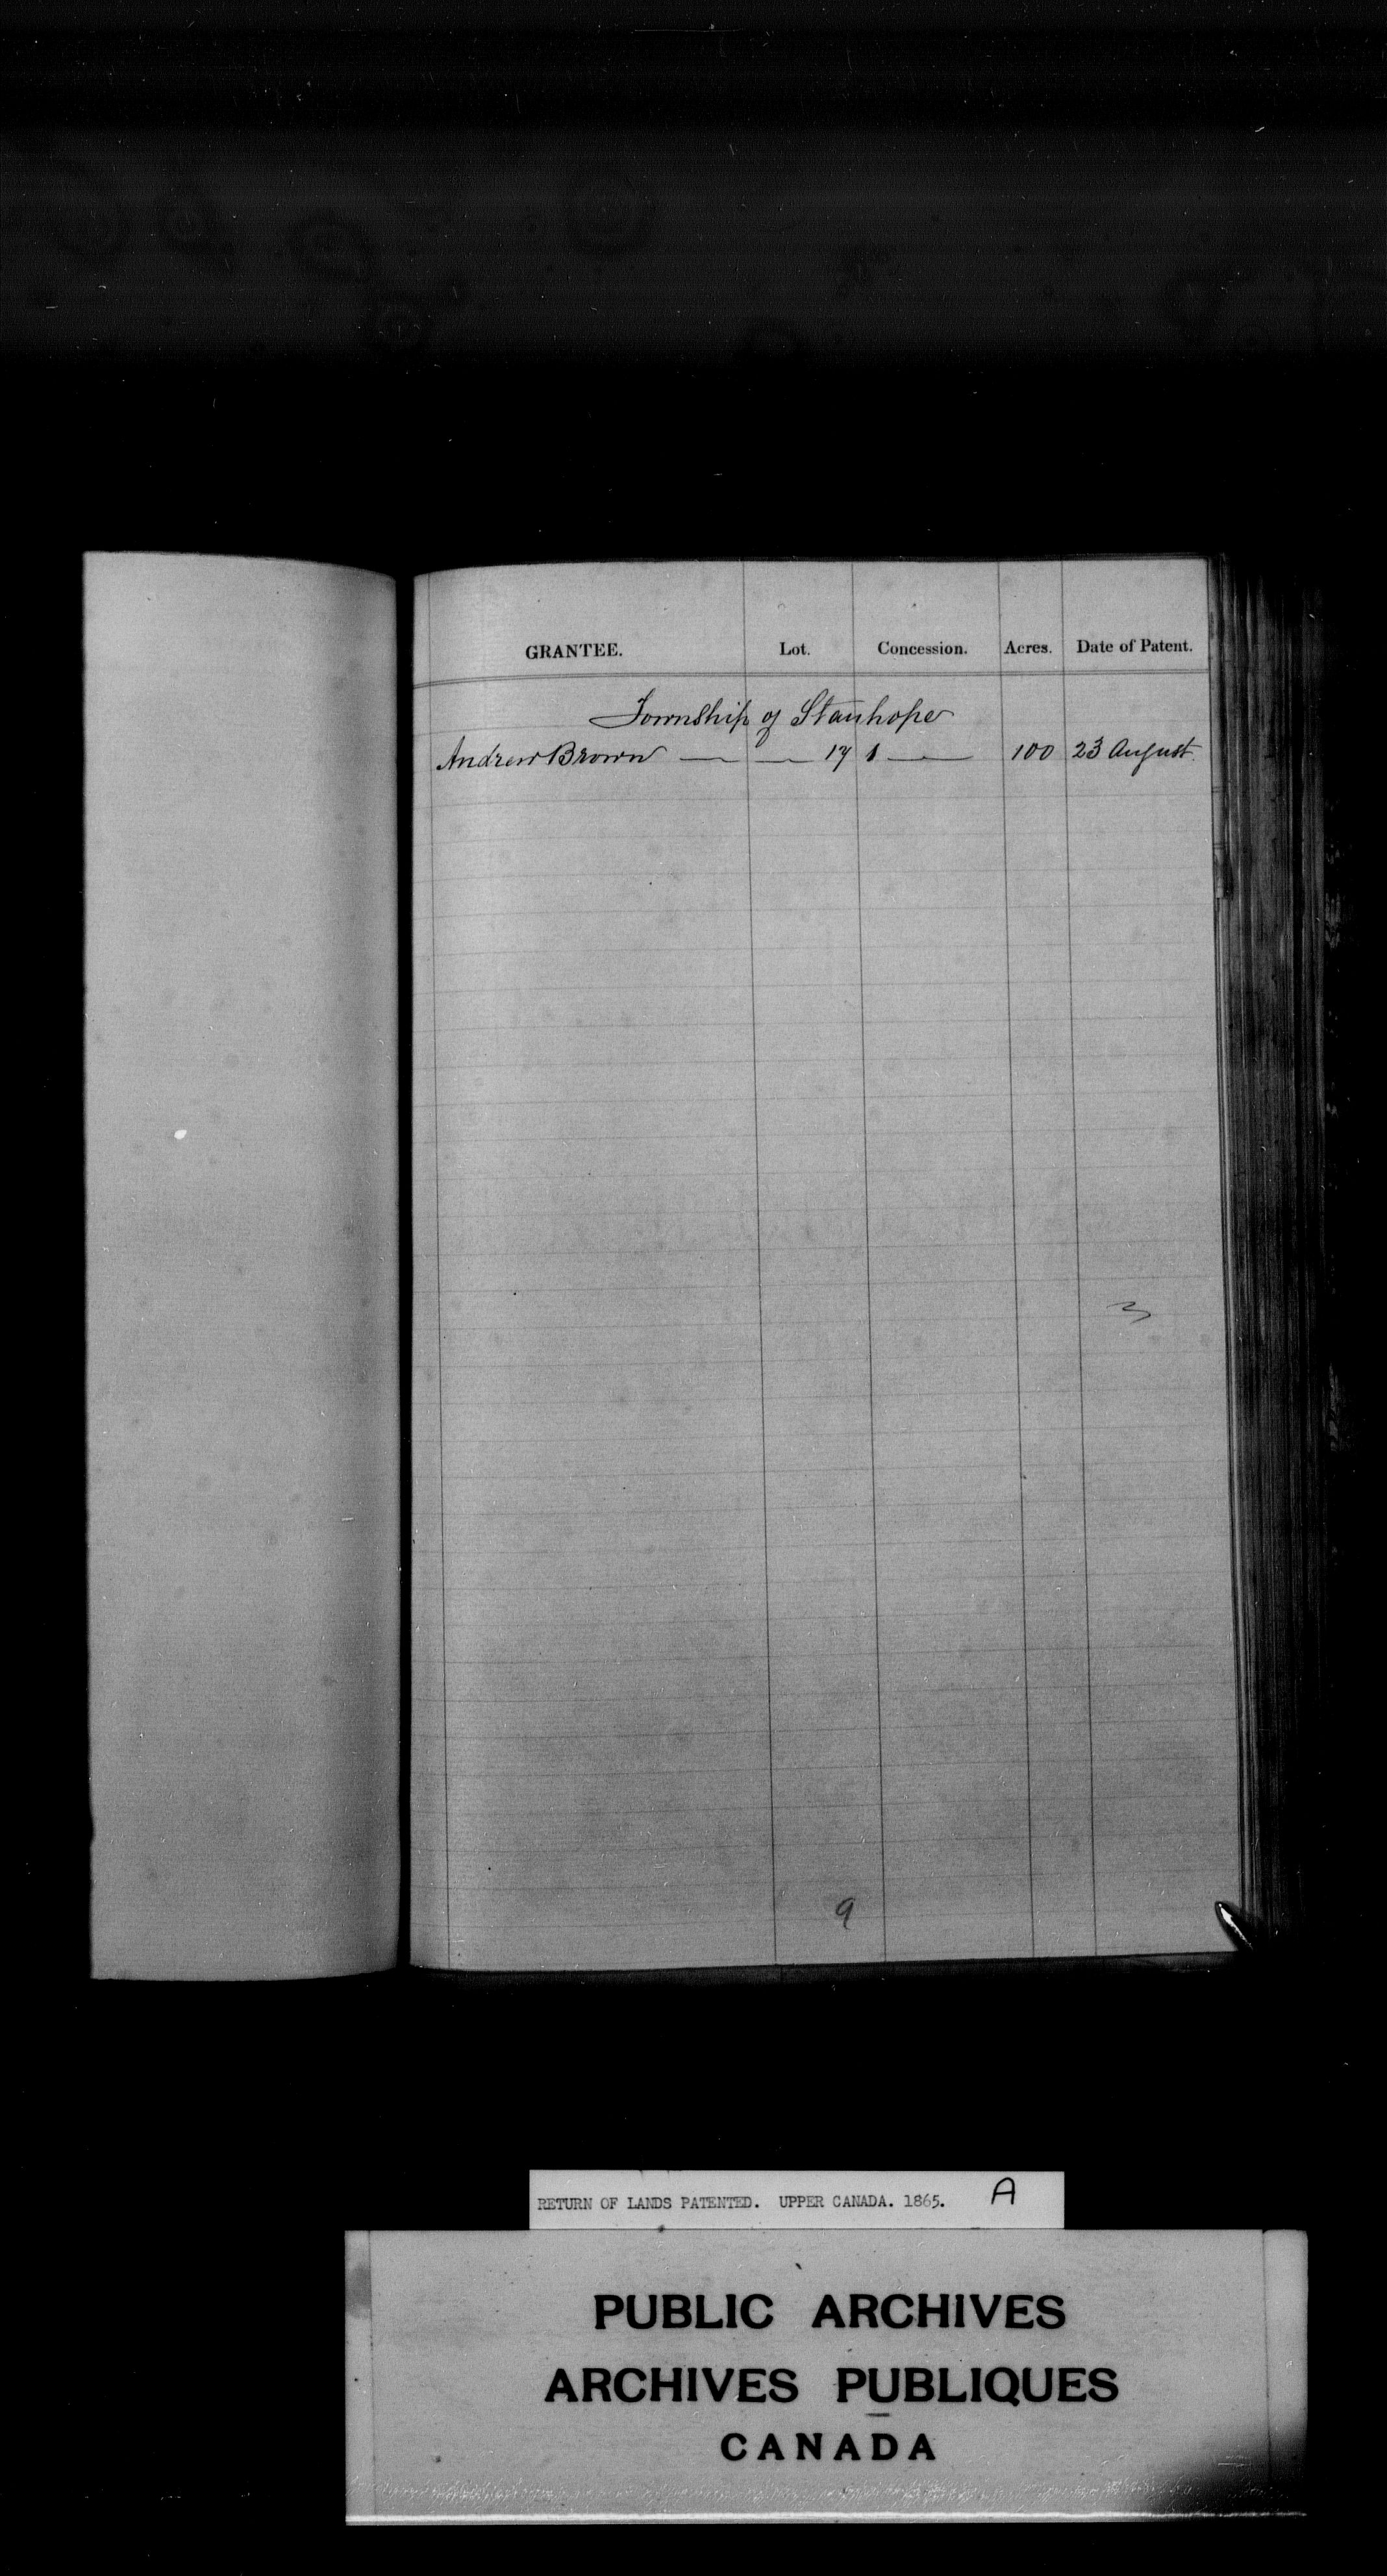 GRANTEE. Lot. Concession. Acres. Date of Patent.
Township of Stanhope
Andrew Brown — — 17 1 — 100 23 August
9
RETURN OF LANDS PATENTED. UPPER CANADA. 1865. A
PUBLIC ARCHIVES
ARCHIVES PUBLIQUES
CANADA